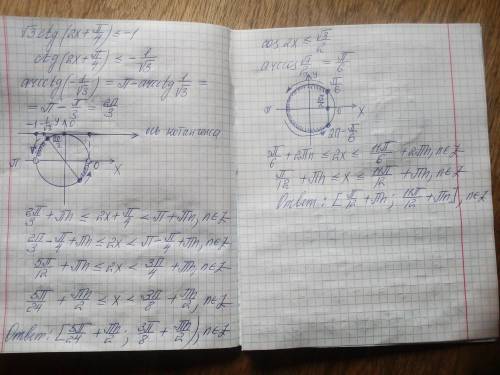 √3 ctg(2x + π/4) ≤ -1
ctg(2x + π/4) ≤ -1/√3
arcctg(-1/√3) = π - arcctg 1/√3 =
= π - π/3 = 2π/3
-1 -1/√3 y 0
ось котангенса
π 0 X
2π/3 + πn ≤ 2x + π/4 < π + πn, n∈Z
2π/3 - π/4 + πn ≤ 2x < π - π/4 + πn, n∈Z
5π/12 + πn ≤ 2x < 3π/4 + πn, n∈Z
5π/24 + πn/2 ≤ x < 3π/8 + πn/2, n∈Z
Ответ: [5π/24 + πn/2; 3π/8 + πn/2), n∈Z
cos 2x ≤ √3/2
arccos √3/2 = π/6
y π/6
π 0 X
2π - π/6
π/6 + 2πn ≤ 2x ≤ 11π/6 + 2πn, n∈Z
π/12 + πn ≤ x ≤ 11π/12 + πn, n∈Z
Ответ: [π/12 + πn; 11π/12 + πn], n∈Z